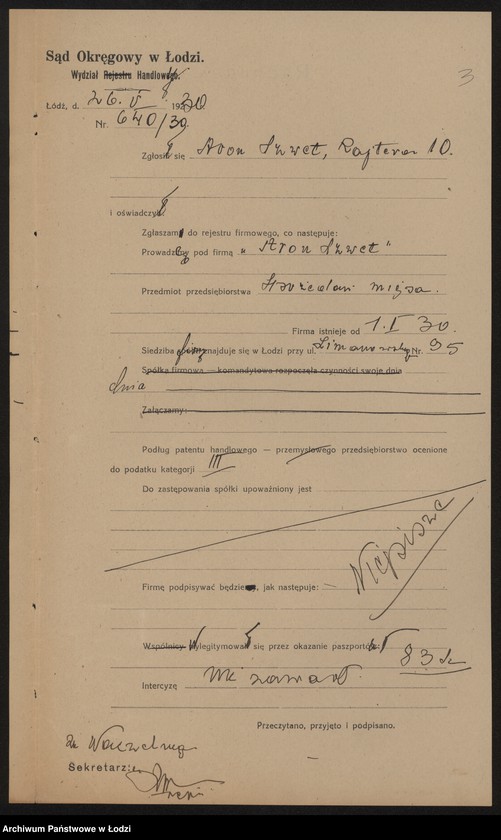 Sąd Okręgowy w Łodzi.
Wydział Rejestru Handlowego.
3
Łódź, d. 26. V 1930.
Nr. 640/30.
Zgłosił się Aron Szwet, Rajtera 10.
i oświadczył:
Zgłaszam do rejestru firmowego, co następuje:
Prowadzę pod firmą „Aron Szwet"
Przedmiot przedsiębiorstwa Sprzedaż mięsa.
Firma istnieje od 1. I 30.
Siedziba firmy znajduje się w Łodzi przy ul. Limanowskiego Nr. 95
Spółka firmowa — komandytowa rozpoczęła czynności swoje dnia
dnia
Załączamy:
Podług patentu handlowego — przemysłowego przedsiębiorstwo ocenione
do podatku kategorji III
Do zastępowania spółki upoważniony jest
Niepisze
Firmę podpisywać będzie, jak następuje:
Wspólnicy Wylegitymował się przez okazanie paszportów:
83
Intercyzę nie zawarł.
Przeczytano, przyjęto i podpisano.
za Naczelnego
Sekretarz:
Archiwum Państwowe w Łodzi